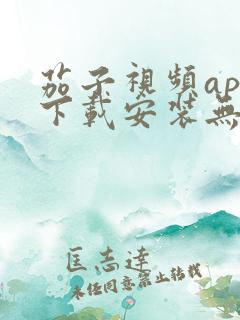 茄子視頻ap
下載安裝無
匡志達
未经同意禁止转载